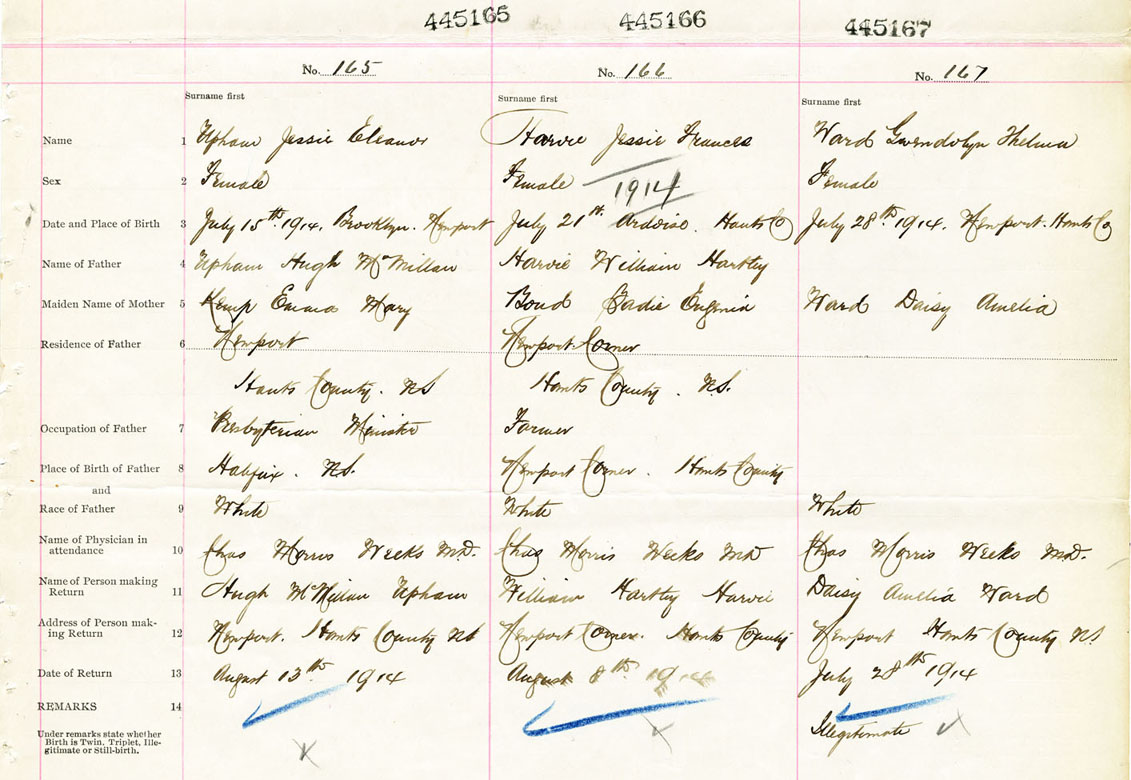 445165 445166 445167
No. 165 No. 166 No. 167
Surname first Surname first Surname first
Name 1 Upham Jessie Eleanor Harvie Jessie Frances Ward Gwendolyn Thelma
Sex 2 Female Female Female
1914
Date and Place of Birth 3 July 15th 1914, Brooklyn. Newport July 21st. Ardoise. Hants Co July 28th. 1914, Newport. Hants Co
Name of Father 4 Upham Hugh McMillan Harvie William Hartley
Maiden Name of Mother 5 Kemp Emma Mary Bond Sadie Eugenia Ward Daisy Amelia
Residence of Father 6 Newport Newport Corner
Hants County. NS Hants County. N.S.
Occupation of Father 7 Presbyterian Minister Farmer
Place of Birth of Father 8 Halifax. N.S. Newport Corner. Hants County
and
Race of Father 9 White White White
Name of Physician in
attendance 10 Chas Morris Weeks M.D. Chas Morris Weeks MD Chas Morris Weeks M.D.
Name of Person making
Return 11 Hugh McMillan Upham William Hartley Harvie Daisy Amelia Ward
Address of Person mak-
ing Return 12 Newport. Hants County NS Newport Corner. Hants County Newport Hants County NS
Date of Return 13 August 13th 1914 August 8th 1914 July 28th 1914
REMARKS 14
Under remarks state whether
Birth is Twin, Triplet, Ille-
gitimate or Still-birth.
Illegitimate